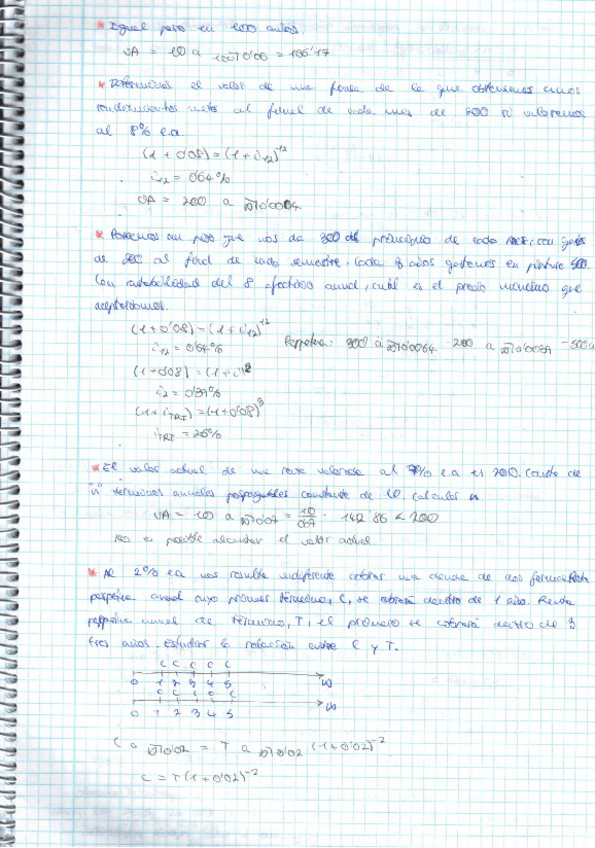 * Igual pero en 100 años.
VA = 10 a 100̅|0'06 = 166'17
* Determinar el valor de una finca de la que obtenemos unos
rendimientos netos al final de cada mes de 200 si valoramos
al 8% e.a.
(1 + 0'08) = (1 + i12)^12
i12 = 0'64%
VA = 200 a ∞|0'0064
* Poseemos un piso que nos da 300 al principio de cada mes, con gastos
de 200 al final de cada semestre. Cada 3 años gastamos en pintura 500.
Con rentabilidad del 8 efectivo anual, cuál es el precio mínimo que
aceptaríamos.
(1 + 0'08) = (1 + i12)^12
i12 = 0'64%
Perpetua: 300 ä ∞|0'0064 - 200 a ∞|0'0039 - 500
(1 + 0'08) = (1 + i2)^2
i2 = 0'39%
(1 + iTRI) = (1 + 0'08)^3
iTRI = 26%
* El valor actual de una renta valorada al 7% e.a es 200. Consta de
"n" términos anuales pospagables constante de 10. Calcular n
VA = 10 a ∞|0'07 = 10/0'7 = 142'86 < 200
No es posible alcanzar el valor actual
* Al 2% e.a nos resulta indiferente cobrar una deuda de dos formas: Renta
perpetua anual cuyo primer término, C, se cobrará dentro de 1 año. Renta
perpetua anual de término, T, el primero se cobrará dentro de 3
tres años. Estudiar la relación entre C y T.
C C C C C
0 1 2 3 4 5 ∞
C C C C
0 1 2 3 4 5 ∞
C a ∞|0'02 = T a ∞|0'02 (1+0'02)^-2
C = T(1+0'02)^-2